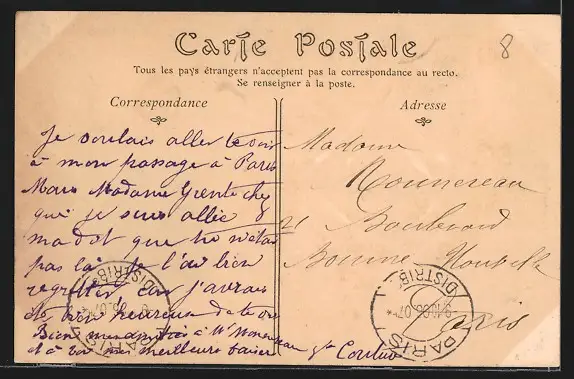 8
Carte Postale
Tous les pays étrangers n'acceptent pas la correspondance au recto.
Se renseigner à la poste.
Correspondance
Adresse
Je voulais aller te voir
à mon passage à Paris
Mais Madame chez
qui je suis allée
m'a dit que tu n'étais
pas là je l'ai bien
regretté car j'aurais
été très heureuse de te voir
Bien mes amitiés à Mr
et à toi mes meilleurs baisers
Madame
21 Boulevard
Bonne Nouvelle
Paris
PARIS
DISTRIB
07
PARIS
DISTRIB
07